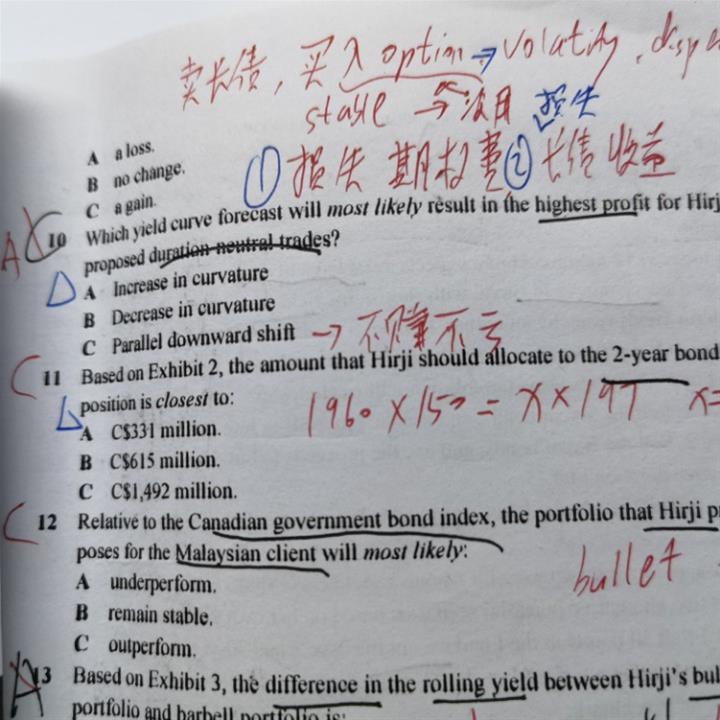 卖长债，买入option→volatity,
stable → 没用 损失
① 损失 期权费 ② 长债 收益
A a loss.
B no change.
C a gain.
A
10 Which yield curve forecast will most likely result in the highest profit for Hirj
proposed duration-neutral trades?
A Increase in curvature
B Decrease in curvature
C Parallel downward shift → 不赚不亏
C 11 Based on Exhibit 2, the amount that Hirji should allocate to the 2-year bond
position is closest to:
1960 × 150 = X × 197 X=
A C$331 million.
B C$615 million.
C C$1,492 million.
C 12 Relative to the Canadian government bond index, the portfolio that Hirji p
poses for the Malaysian client will most likely:
bullet
A underperform.
B remain stable.
C outperform.
A 13 Based on Exhibit 3, the difference in the rolling yield between Hirji's bul
portfolio and barbell portfolio is: